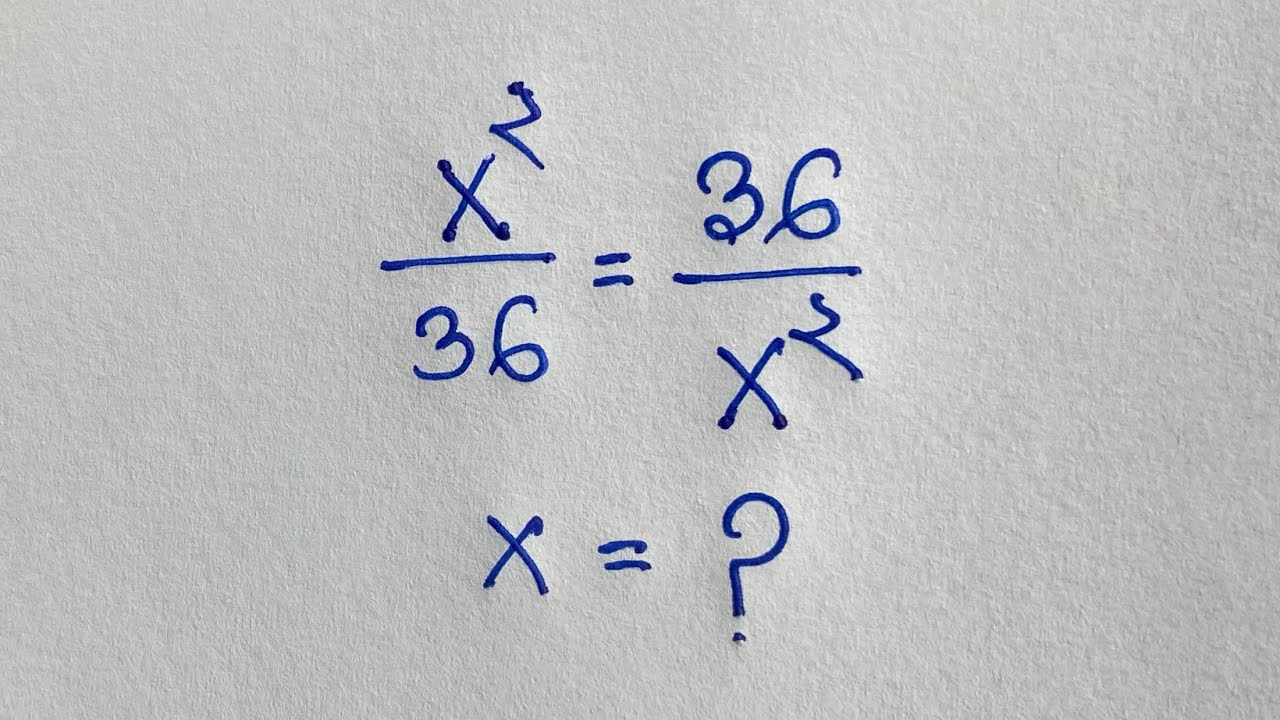 x²/36 = 36/x²
x = ?